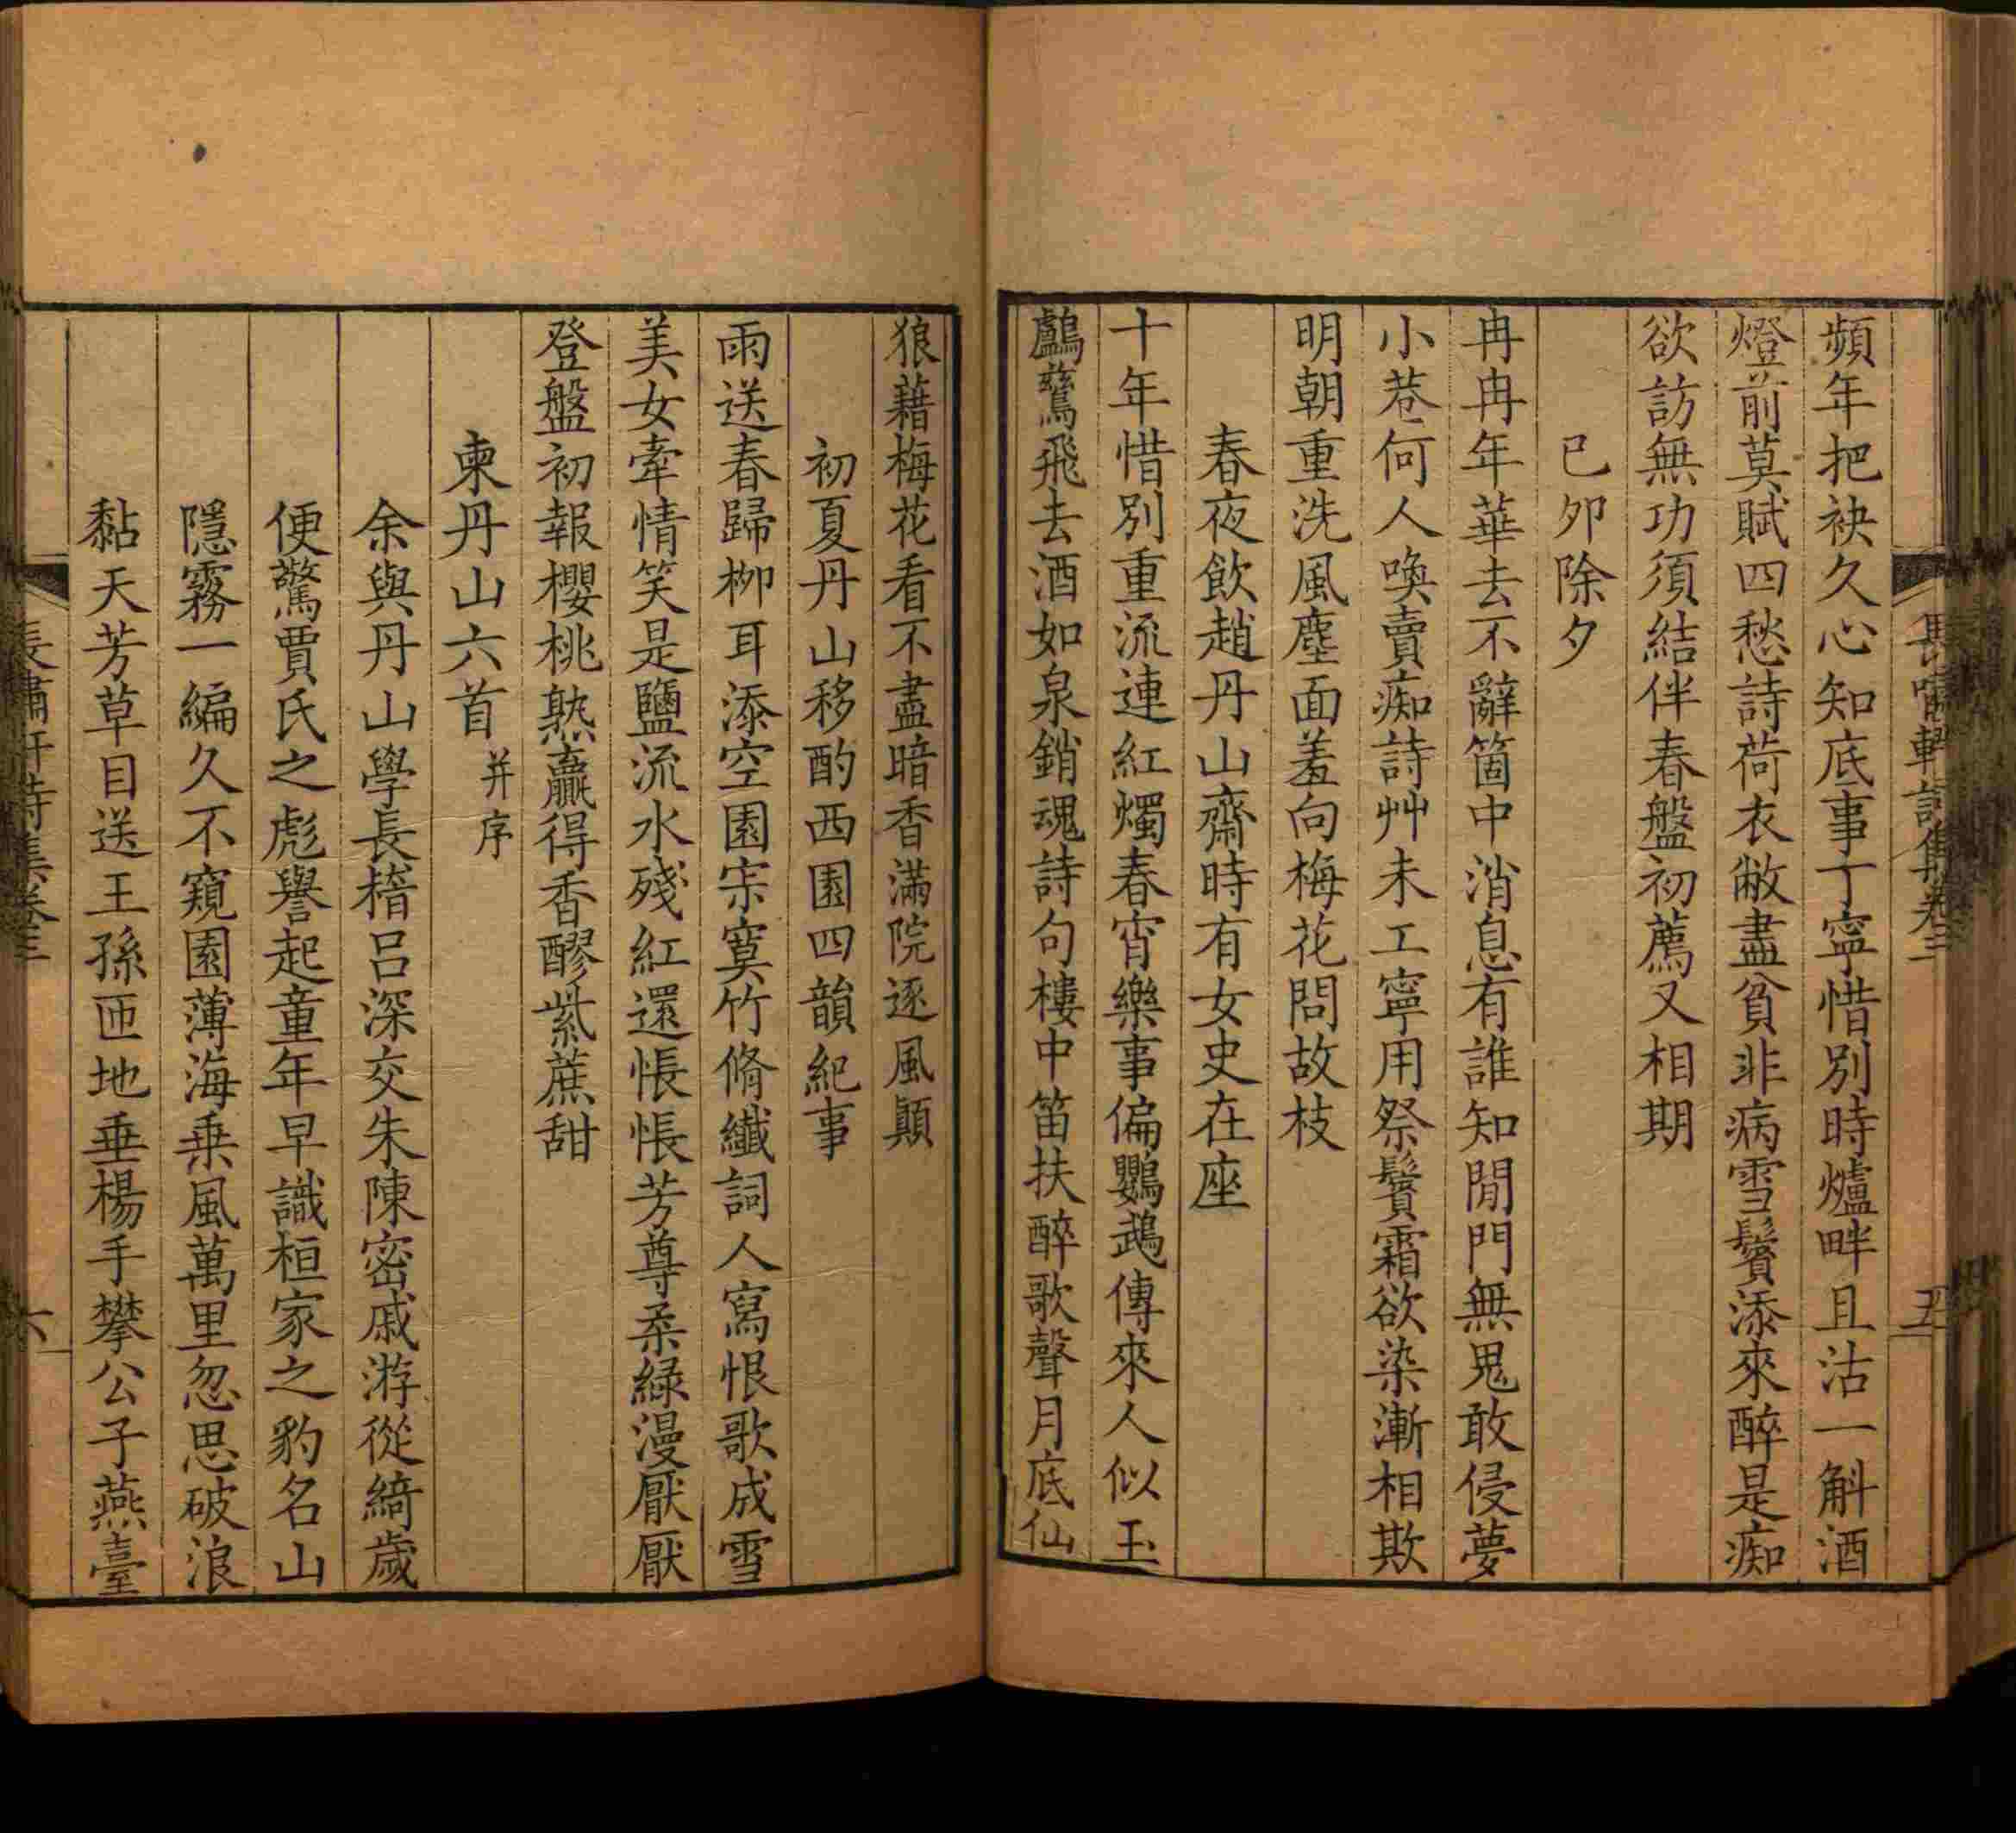 長嘯軒詩集卷三
五
頻年把袂久心知底事丁寧惜別時爐畔且沽一斛酒
燈前莫賦四愁詩荷衣敝盡貧非病雪鬢添來醉是痴
欲訪無功須結伴春盤初薦又相期
己夘除夕
冉冉年華去不辭箇中消息有誰知閒門無鬼敢侵夢
小巷何人喚賣痴詩艸未工寧用祭鬢霜欲染漸相欺
明朝重洗風塵面羞向梅花問故枝
春夜飲趙丹山齋時有女史在座
十年惜別重流連紅燭春宵樂事偏鸚鵡傳來人似玉
鸕鶿飛去酒如泉銷魂詩句樓中笛扶醉歌聲月底仙
狼藉梅花看不盡暗香滿院逐風顛
初夏丹山移酌西園四韻紀事
雨送春歸栁耳添空園宗寞竹脩纖詞人寫恨歌成雪
美女牽情笑是鹽流水殘紅還悵悵芳尊柔綠漫厭厭
登盤初報櫻桃熟贏得香醪紫蔗甜
柬丹山六首 并序
余與丹山學長楷呂深交朱陳密戚游從綺歲
便驚賈氏之彪譽起童年早識桓家之豹名山
隱霧一編久不窺園薄海乗風萬里忽思破浪
黏天芳草目送王孫匝地垂楊手攀公子燕臺
長嘯軒詩集卷三
六